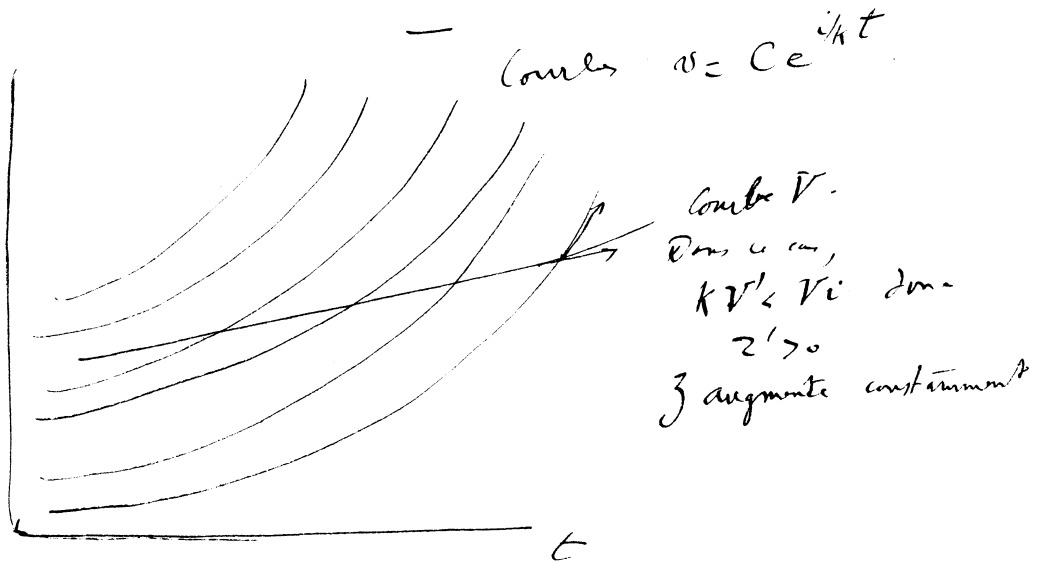 Courbes v = C e^{i/k t}
Courbe V.
Dans ce cas,
K V' < Vi donc
z' > 0
z augmente constamment
t